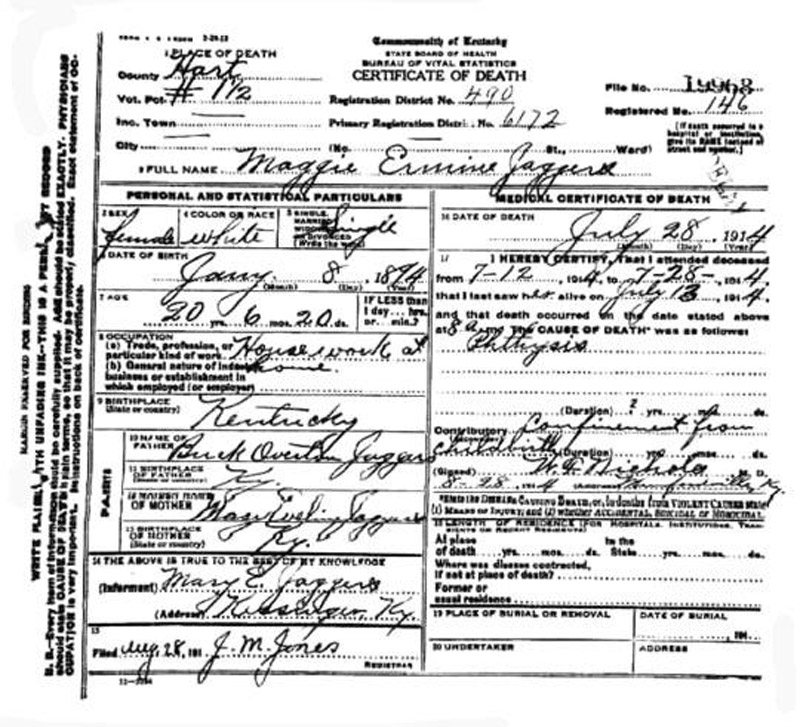 1 PLACE OF DEATH
County Hart
Vot. Pct. # 1 1/2
Inc. Town
City (No. St., Ward)
Commonwealth of Kentucky
STATE BOARD OF HEALTH
BUREAU OF VITAL STATISTICS
CERTIFICATE OF DEATH
Registration District No. 490
Primary Registration Distri No. 6172
File No.
Registered No. 146
[If death occurred in a hospital or institution, give its NAME instead of street and number.]
2 FULL NAME Maggie Ermine Jaggers
PERSONAL AND STATISTICAL PARTICULARS
3 SEX female
4 COLOR OR RACE white
5 SINGLE, MARRIED, WIDOWED OR DIVORCED (Write the word) Single
6 DATE OF BIRTH
Jany. 8, 1894
(Month) (Day) (Year)
7 AGE
20 yrs. 6 mos. 20 ds.
IF LESS than 1 day, hrs. or min.?
8 OCCUPATION
(a) Trade, profession, or particular kind of work Housework at home
(b) General nature of industry business or establishment in which employed (or employer)
9 BIRTHPLACE
(State or country) Kentucky
PARENTS
10 NAME OF FATHER Buck Overton Jaggers
11 BIRTHPLACE OF FATHER
(State or country) Ky.
12 MAIDEN NAME OF MOTHER Mary Eveline Jaggers
13 BIRTHPLACE OF MOTHER
(State or country) Ky.
14 THE ABOVE IS TRUE TO THE BEST OF MY KNOWLEDGE
(Informant) Mary E. Jaggers
(Address) Ky.
15
Filed Aug. 28, 191 J. M. Jones
REGISTRAR
MEDICAL CERTIFICATE OF DEATH
16 DATE OF DEATH
July 28, 1914
(Month) (Day) (Year)
17 I HEREBY CERTIFY, That I attended deceased
from 7-12, 1914, to 7-28-, 1914
that I last saw her alive on July 13, 1914,
and that death occurred on the date stated above
at 8 a m. The CAUSE OF DEATH* was as follows:
Phthysis
(Duration) ? yrs. mos. ds.
Contributory Confinement from childbirth
(Duration) yrs. mos. ds.
(Signed) Nichols M. D.
8-28, 1914 (Address) Munfordville, Ky.
*State the DISEASE CAUSING DEATH, or, in deaths from VIOLENT CAUSES state (1) MEANS OF INJURY; and (2) whether ACCIDENTAL, SUICIDAL or HOMICIDAL.
18 LENGTH OF RESIDENCE (FOR HOSPITALS, INSTITUTIONS, TRANSIENTS OR RECENT RESIDENTS)
At place of death yrs. mos. ds. In the State yrs. mos. ds.
Where was disease contracted,
if not at place of death?
Former or
usual residence
19 PLACE OF BURIAL OR REMOVAL
DATE OF BURIAL
, 191
20 UNDERTAKER
ADDRESS
MARGIN RESERVED FOR BINDING
WRITE PLAINLY WITH UNFADING INK—THIS IS A PERMANENT RECORD
N. B.—Every item of information should be carefully supplied. AGE should be stated EXACTLY. PHYSICIANS
should state CAUSE OF DEATH in plain terms, so that it may be properly classified. Exact statement of OC-
CUPATION is very important. Instructions on back of certificate.